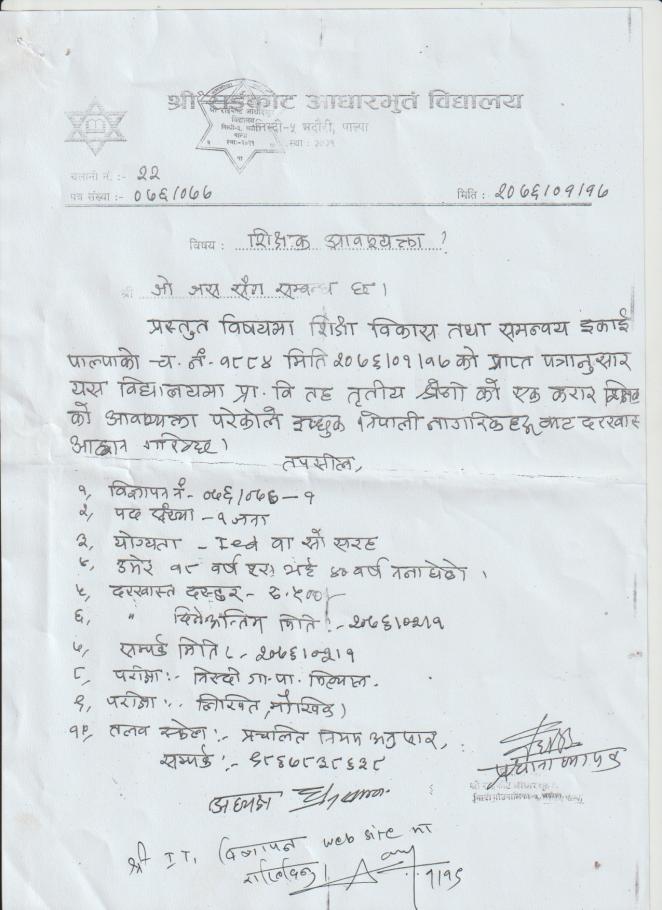 श्री राईकोट आधारभुत विद्यालय
निस्दी-५ भदौरी, पाल्पा
स्था : २०२१
चलानी नं. :- २२
पत्र संख्या :- ०७६/०७७
मिति : २०७६/०१/१७
विषय : शिक्षक आवश्यक्ता ?
श्री जो जस सँग सम्बन्ध छ।
प्रस्तुत विषयमा शिक्षा विकास तथा समन्वय इकाई
पाल्पाको च. नं. १८८४ मिति २०७६/०१/१७ को प्राप्त पत्रानुसार
यस विद्यालयमा प्रा. वि तह तृतीय श्रेणी को एक करार शिक्षक
को आवश्यक्ता परेकोले इच्छुक नेपाली नागरिकहरू बाट दरखास्त
आह्वान गरिन्छ।
तपसील,
१, विज्ञापन नं - ०७६/०७७ - १
२, पद संख्या - १ जना
३, योग्यता - Ied वा सो सरह
४, उमेर १८ वर्ष पुरा भई ४० वर्ष ननाघेको ।
५, दरखास्त दस्तुर - रु. ५००/-
६, " दिने अन्तिम मिति :- २०७६/०२/१
७, सम्पर्क मिति :- २०७६/०२/१
८, परीक्षा :- निस्दी गा.पा. मित्याल.
९, परीक्षा :- लिखित, मौखिक)
१०, तलव स्केल :- प्रचलित नियम अनुसार,
सम्पर्क :-
प्रधानाध्यापक
अध्यक्ष
श्री IT, विज्ञापन web site मा
राखिदिनु।
१/१९